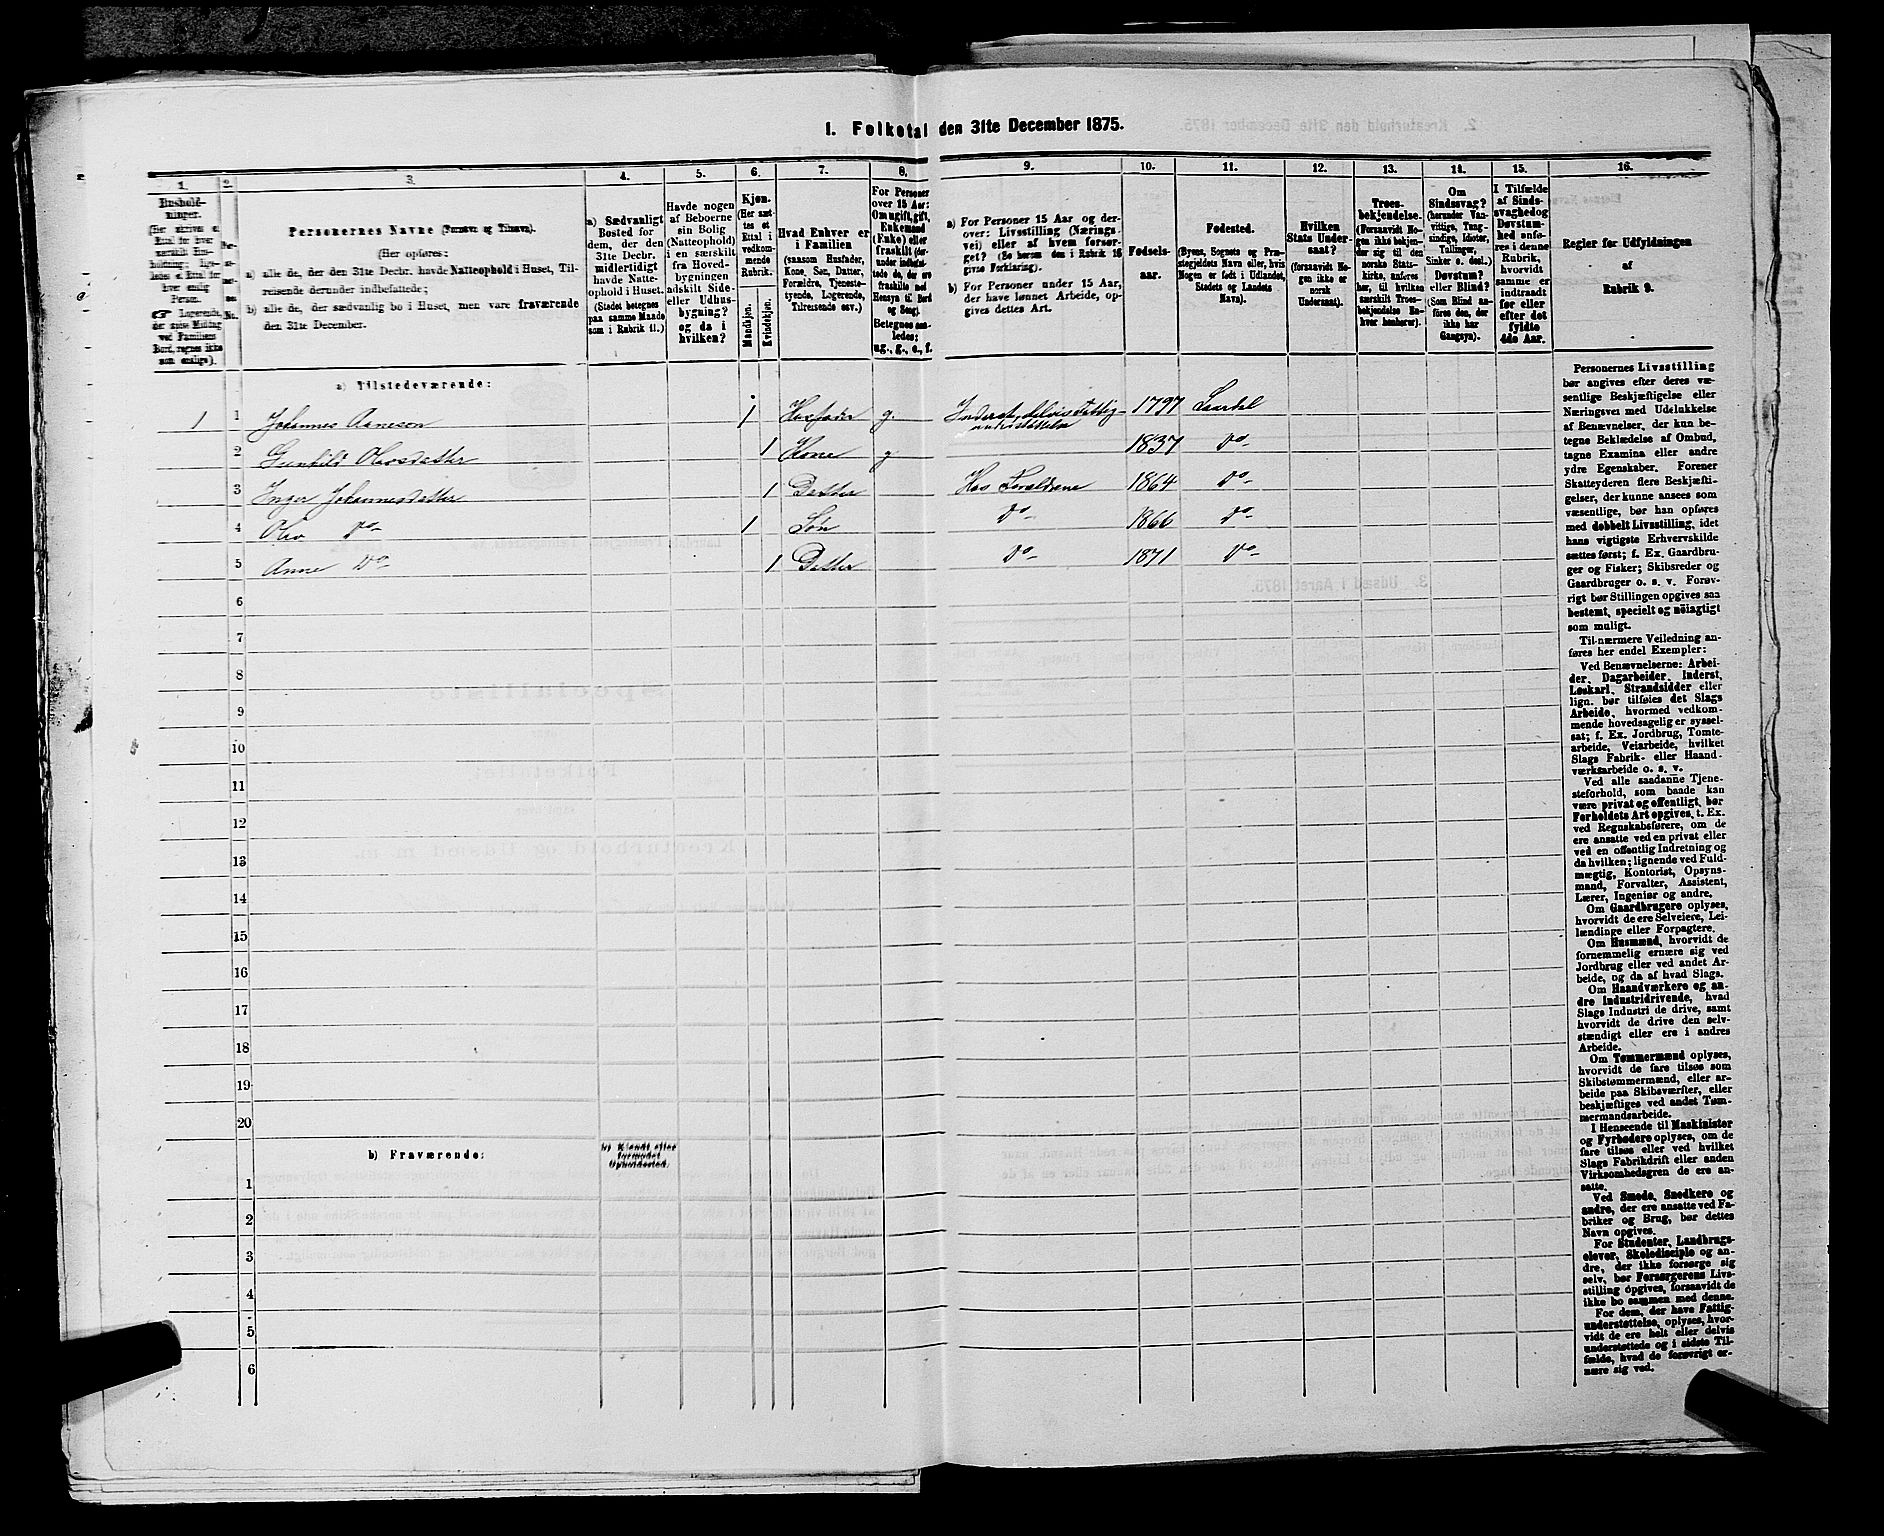 1. Folketal den 31te December 1875.
1. 2. 3. 4. 5. 6. 7. 8. 9. 10. 11. 12. 13. 14. 15. 16.
Hushold-
ninger.
Personernes Navne (Fornavn og Tilnavn).
(Her opføres:
a) alle de, der den 31te Decbr. havde Natteophold i Huset, Til-
reisende derunder indbefattede;
b) alle de, der sædvanlig bo i Huset, men vare fraværende
den 31te December.
a) Sædvanligt
Bosted for
dem, der den
31te Decbr.
midlertidigt
havde Natte-
ophold i Huset.
(Stedet betegnes
paa samme Maade
som i Rubrik 11.)
Havde nogen
af Beboerne
sin Bolig
(Natteophold)
i en særskilt
fra Hoved-
bygningen
adskilt Side-
eller Udhus-
bygning?
og da i
hvilken?
Kjøn.
(Her sæt-
tes et
Ettal i
vedkom-
mende
Rubrik.
Mandkjøn.
Kvindekjøn.
Hvad Enhver er
i Familien
(saasom Husfader,
Kone, Søn, Datter,
Forældre, Tjeneste-
tyende, Logerende,
Tilreisende osv.)
For Personer
over 15 Aar:
Om ugift, gift,
Enkemand
(Enke) eller
fraskilt (der-
under indbefat-
tede de, der ere
fraskilte med
Hensyn til Bord
og Seng).
Betegnes saa-
ledes:
ug., g., e., f.
a) For Personer 15 Aar og der-
over: Livsstilling (Nærings-
vei) eller af hvem forsør-
get? (Se herom den i Rubrik 16
givne Forklaring).
b) For Personer under 15 Aar,
der have lønnet Arbeide, op-
gives dettes Art.
Fødsels-
aar.
Fødested.
(Byens, Sognets og Præ-
stegjeldets Navn eller, hvis
Nogen er født i Udlandet,
Stedets og Landets
Navn).
Hvilken
Stats Under-
saat?
(forsaavidt No-
gen ikke er
norsk
Undersaat).
Troes-
bekjendelse.
(Forsaavidt No-
gen ikke bekjen-
der sig til den
norske Stats-
kirke, anføres
her, til hvilken
særskilt Troes-
bekjendelse En-
hver henhører).
Om
Sindssvag?
(herunder Van-
vittige, Tung-
sindige, Idioter,
Tullinger,
Sinker o. desl.)
Døvstum?
eller Blind?
(Som Blind an-
føres den, der
ikke har
Gangsyn).
I Tilfælde
af Sinds-
svaghed og
Døvstum-
hed anfø-
res i denne
Rubrik,
hvorvidt
samme er
indtraadt
før eller
efter det
fyldte
4de Aar.
Regler for Udfyldningen
af
Rubrik 9.
a) Tilstedeværende:
1 1 Johannes Aaneson 1 Husfader g. Inderst, delvis Fattig- 1797 Laardal
understøttelse
2 Gunhild Olavsdatter 1 Kone g 1837 do-
3 Inger Johannesdatter 1 Datter Hos Forældrene 1864 do-
4 Olav do- 1 Søn do- 1866 do-
5 Anne do- 1 Datter do- 1871 do-
6
7
8
9
10
11
12
13
14
15
16
17
18
19
20
b) Fraværende: b) Kjendt eller
formodet
Opholdssted.
1
2
3
4
5
6
Personernes Livsstilling
bør angives efter deres væ-
sentlige Beskjæftigelse eller
Næringsvei med Udelukkelse
af Benævnelser, der kun be-
tegne Beklædelse af Ombud,
tagne Examina eller andre
ydre Egenskaber. Forener
Skatteyderen flere Beskjæfti-
gelser, der kunne ansees som
væsentlige, bør han opføres
med dobbelt Livsstilling, idet
hans vigtigste Erhvervskilde
sættes først; f. Ex. Gaardbru-
ger og Fisker; Skibsreder og
Gaardbruger o. s. v. Forøv-
rigt bør Stillingen opgives saa
bestemt, specielt og nöiagtigt
som muligt.
Til nærmere Veiledning an-
føres her endel Exempler:
Ved Benævnelserne: Arbei-
der, Dagarbeider, Inderst,
Løskarl, Strandsidder eller
lign. bør tilføies det Slags
Arbeide, hvormed vedkom-
mende hovedsagelig er syssel-
sat; f. Ex. Jordbrug, Tomte-
arbeide, Veiarbeide, hvilket
Slags Fabrik- eller Haand-
værksarbeide o. s. v.
Ved alle saadanne Tjene-
steforhold, som baade kan
være privat og offentligt, bør
Forholdets Art opgives, t. Ex.
ved Regnskabsførere, om de
ere ansatte ved en privat eller
ved en offentlig Indretning og
da hvilken; lignende ved Fuld-
mægtig, Kontorist, Opsyns-
mand, Forvalter, Assistent,
Lærer, Ingeniør og andre.
Om Gaardbrugere oplyses,
hvorvidt de ere Selveiere, Lei-
lændinge eller Forpagtere.
Om Husmænd, hvorvidt de
fornemmelig ernære sig ved
Jordbrug eller ved andet Ar-
beide, og da af hvad Slags.
Om Haandværkere og an-
dre Industridrivende, hvad
Slags Industri de drive, samt
hvorvidt de drive den selv-
stændigt eller ere i andres
Arbeide.
Om Tømmermænd oplyses,
hvorvidt de fare tilsøs som
Skibstømmermænd, eller ar-
beide paa Skibsværfter, eller
beskjæftiges ved andet Tøm-
mermandsarbeide.
I Henseende til Maskinister
og Fyrbødere oplyses, om de
fare tilsøs eller ved hvilket
Slags Fabrikdrift eller anden
Virksomhedsgren de ere an-
satte.
Ved Smede, Snedkere og
andre, der ere ansatte ved Fa-
briker og Brug, bør dettes
Navn opgives.
For Studenter, Landbrugs-
elever, Skoledisciple og an-
dre, der ikke forsørge sig
selv, bør Forsørgerens Livs-
stilling opgives, forsaavidt de
ikke bo sammen med denne.
For dem, der have Fattig-
understøttelse, oplyses, hvor-
vidt de ere helt eller delvis
understøttede og i sidste Til-
fælde, hvad de forøvrigt er-
nære sig ved.